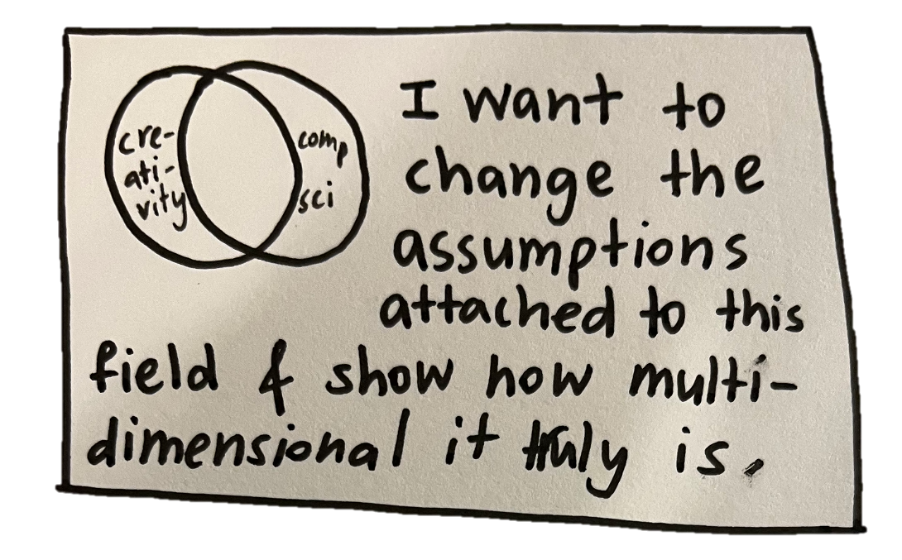 cre-
ati-
vity
comp
sci
I want to
change the
assumptions
attached to this
field & show how multi-
dimensional it truly is.